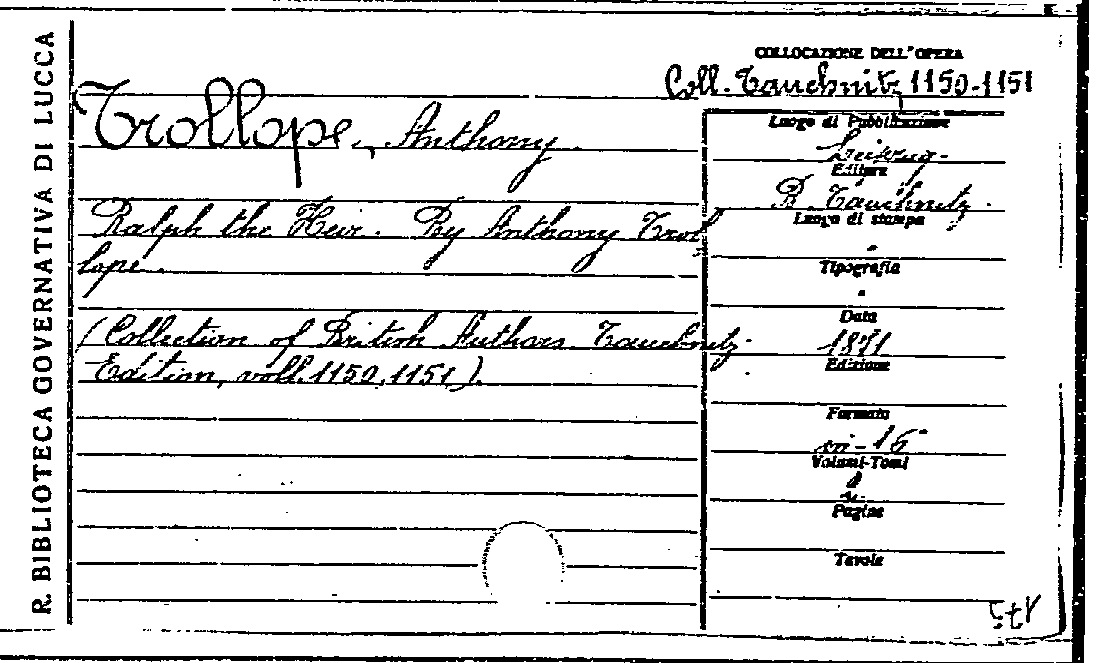 R. BIBLIOTECA GOVERNATIVA DI LUCCA
COLLOCAZIONE DELL'OPERA
Coll. Tauchnitz 1150-1151
Trollope, Anthony.
Ralph the Heir. By Anthony Trol
lope.
(Collection of British Authors Tauchnitz
Edition, voll. 1150, 1151).
Luogo di Pubblicazione
Leipzig.
Editore
B. Tauchnitz.
Luogo di stampa
"
Tipografia
"
Data
1871
Edizione
Formato
in-16°
Volumi-Tomi
2
Pagine
Tavole